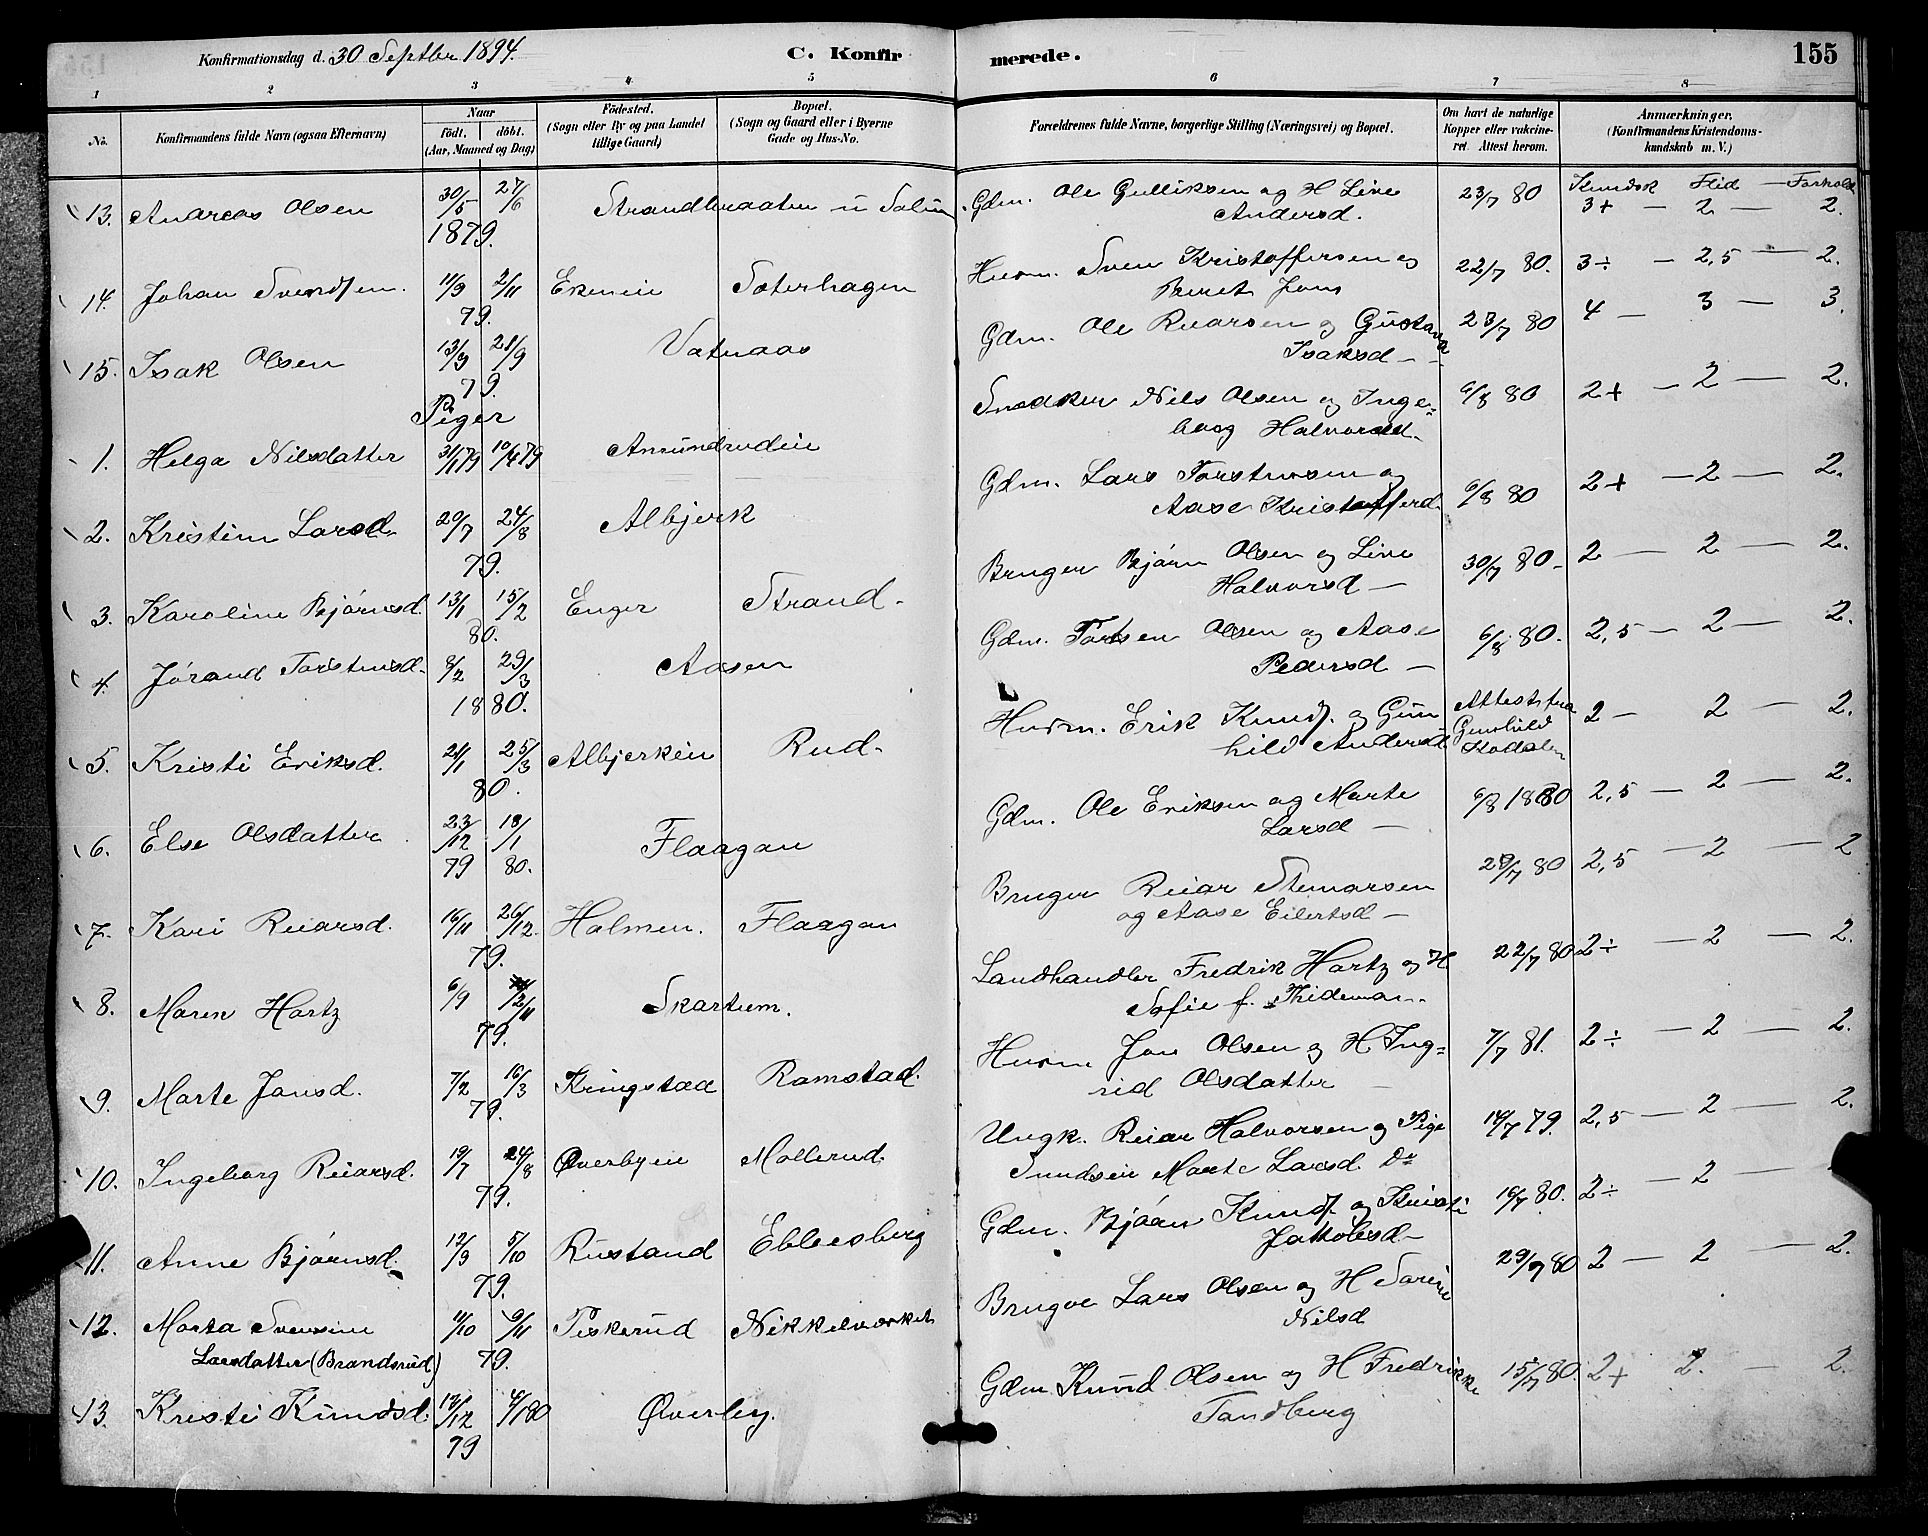 Konfirmationsdag d. 30 Septber 1894. C. Konfirmerede. 155
1 2 3 4 5 6 7 8
No. Konfirmandens fulde Navn (ogsaa Efternavn) Naar født, døbt. (Aar, Maaned og Dag) Fødested. (Sogn eller By og paa Landet tillige Gaard) Bopæl. (Sogn og Gaard eller i Byerne Gade og Hus-No. Forældrenes fulde Navne, borgerlige Stilling (Næringsvei) og Bopæl. Om havt de naturlige Kopper eller vakcineret. Attest herom. Anmærkninger. (Konfirmandens Kristendomskundskab m. V.)
Kundsk Flid — Forhold
13. Andreas Olsen 30/5 27/6 1879. Strandbraaten Gdm. Ole Gulliksen og H Live Andersd. 23/7 80 3+ — 2 — 2.
14. Johan Svendsen. 11/9 2/11 79. Ekeneie Søterhagen Husm. Sven Kristoffersen og Beret Jons 22/7 80. 3÷ — 2,5 — 2.
15. Isak Olsen 13/9 21/9 79. Vatnaas Gdm. Ole Reiarsen og Gustava Isaksd — 23/7 80 4 — 3 — 3.
Piger
1. Helga Nilsdatter 31/1 79 10/4 79 Amundrudeie Snedker Nils Olsen og Ingeborg Halvorsd. 6/8 80 2+ — 2 — 2.
2. Kristine Larsd. 20/7 24/8 79. Albjerk Gdm. Lars Torstensen og Aase Kristofferd. 6/8 80 2+ — 2 — 2.
3. Karoline Bjørnsd. 13/1 15/2 80. Enger Strand. Bruger Bjørn Olsen og Live Halvorsd — 30/7 80. 2 — 2 — 2.
4. Jørand Torstensd. 8/2 29/3 1880. Aasen Gdm. Torsten Olsen og Aase Pedersd — 6/8 80. 2,5 — 2 — 2.
5. Kristi Eriksd. 21/1 25/3 80. Albjerkeie Rud. Husm. Erik Knuds. og Gunhild Andersd Attest fra Gunhild Kadalen 2 — 2 — 2.
6. Else Olsdatter 23/12 79 18/1 80. Flaagan Gdm. Ole Eriksen og Marte Larsd — 6/8 1880 2,5 — 2 — 2.
7. Kari Reiarsd. 16/11 26/12. 79. Holmen. Flaagan Bruger Reiar Stenarsen og Aase Eilertsd — 28/7 80 2,5 — 2 — 2
8. Maren Hartz 6/9 2/11 79. Skartum. Landhandler Fredrik Hartz og H Sofie f. Thideman. 22/7 80 2÷ — 2 — 2.
9. Marte Jonsd. 7/2 16/3 79. Kringstad Ramstad. Husm Jon Olsen og H. Ingrid Olsdatter — 7/7 81. 2÷ — 2 — 2.
10. Ingeborg Reiarsd. 19/7 24/8 79. Øverbyeie Møllerud. Ungk. Reiar Halvorsen og Pige Marte Larsd. Do 14/7 79. 2,5 — 2 — 2.
11. Anne Bjørnsd. 12/9 5/10 79. Rustand Eblesberg Gdm. Bjørn Knuds. og Kristi Jakobsd — 16/7 80. 2÷ — 2 —
12. Marta Svensine Larsdatter (Brandsrud) 11/10 9/11 79. Fiskerud Nikkelverket Bruger Lars Olsen og H Sarine Nilsd 29/9 80 2 — 2 — 2.
13. Kristi Knudsd. 12/12 79 4/1 80 Øverby. Gdm Knud Olsen og H Fredrikke Tandberg 15/7 80. 2+ 2. — 2.